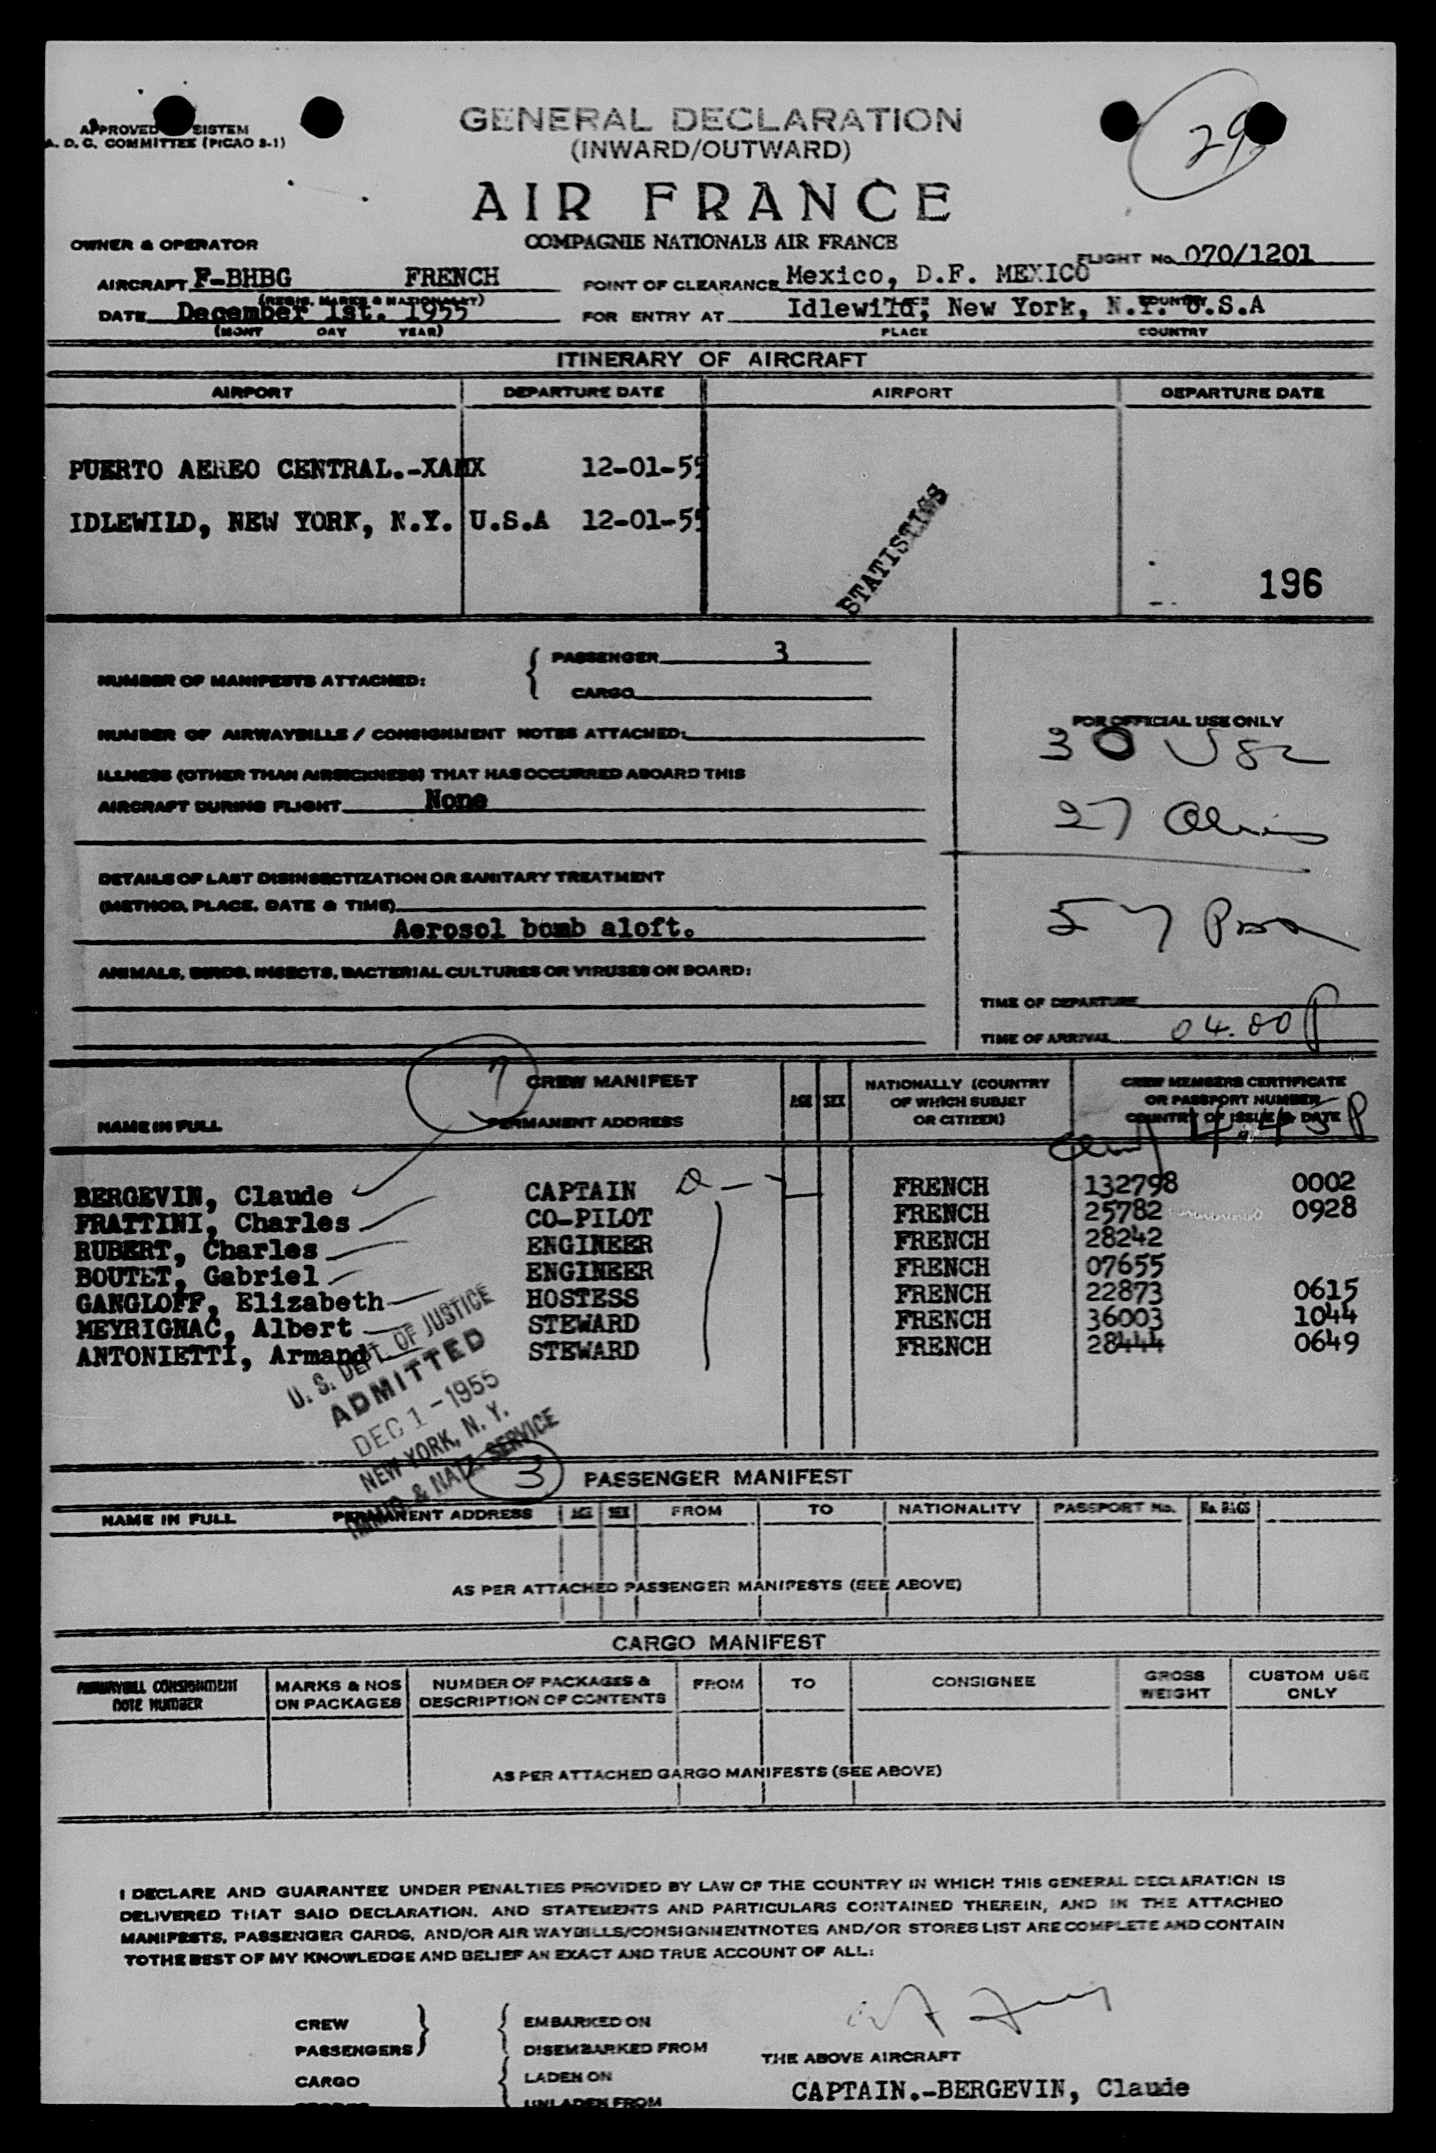 GENERAL DECLARATION
(INWARD/OUTWARD)
29
APPROVED SISTEM
A. D. C. COMMITTEE (PICAO 3-1)
AIR FRANCE
OWNER & OPERATOR
COMPAGNIE NATIONALE AIR FRANCE
FLIGHT No. 070/1201
AIRCRAFT F-BHBG FRENCH POINT OF CLEARANCE Mexico, D.F. MEXICO
(REGIS. MARKS & NATIONALITY) COUNTRY
DATE December 1st. 1955 FOR ENTRY AT Idlewild, New York, N.Y. U.S.A
(MONT DAY YEAR) PLACE COUNTRY
ITINERARY OF AIRCRAFT
AIRPORT DEPARTURE DATE AIRPORT DEPARTURE DATE
PUERTO AEREO CENTRAL.-XAMX 12-01-55
IDLEWILD, NEW YORK, N.Y. U.S.A 12-01-55
STATISTICS
196
NUMBER OF MANIFESTS ATTACHED: PASSENGER 3
CARGO
NUMBER OF AIRWAYBILLS / CONSIGNMENT NOTES ATTACHED:
FOR OFFICIAL USE ONLY
30 USC
ILLNESS (OTHER THAN AIRSICKNESS) THAT HAS OCCURRED ABOARD THIS
AIRCRAFT DURING FLIGHT None
27 Aliens
DETAILS OF LAST DISINSECTIZATION OR SANITARY TREATMENT
(METHOD, PLACE, DATE & TIME)
Aerosol bomb aloft.
57
ANIMALS, BIRDS, INSECTS, BACTERIAL CULTURES OR VIRUSES ON BOARD:
TIME OF DEPARTURE
TIME OF ARRIVAL 04.00 P
7
CREW MANIFEST
NAME IN FULL PERMANENT ADDRESS AGE SEX NATIONALLY (COUNTRY
OF WHICH SUBJET
OR CITIZEN)
CREW MEMBERS CERTIFICATE
OR PASSPORT NUMBER
COUNTRY OF ISSUE & DATE
BERGEVIN, Claude CAPTAIN FRENCH 132798 0002
FRATTINI, Charles CO-PILOT FRENCH 25782 0928
RUBERT, Charles ENGINEER FRENCH 28242
BOUTET, Gabriel ENGINEER FRENCH 07655
GANGLOFF, Elizabeth HOSTESS FRENCH 22873 0615
MEYRIGNAC, Albert STEWARD FRENCH 36003 1044
ANTONIETTI, Armand STEWARD FRENCH 28444 0649
U. S. DEPT. OF JUSTICE
ADMITTED
DEC 1 - 1955
NEW YORK, N. Y.
IMMIG & NATZ SERVICE
3
PASSENGER MANIFEST
NAME IN FULL PERMANENT ADDRESS AGE SEX FROM TO NATIONALITY PASSPORT No. No. BAGS
AS PER ATTACHED PASSENGER MANIFESTS (SEE ABOVE)
CARGO MANIFEST
AIRWAYBILL CONSIGNMENT
NOTE NUMBER
MARKS & NOS
ON PACKAGES
NUMBER OF PACKAGES &
DESCRIPTION OF CONTENTS
FROM TO CONSIGNEE
GROSS
WEIGHT
CUSTOM USE
ONLY
AS PER ATTACHED CARGO MANIFESTS (SEE ABOVE)
I DECLARE AND GUARANTEE UNDER PENALTIES PROVIDED BY LAW OF THE COUNTRY IN WHICH THIS GENERAL DECLARATION IS
DELIVERED THAT SAID DECLARATION, AND STATEMENTS AND PARTICULARS CONTAINED THEREIN, AND IN THE ATTACHED
MANIFESTS, PASSENGER CARDS, AND/OR AIR WAYBILLS/CONSIGNMENTNOTES AND/OR STORES LIST ARE COMPLETE AND CONTAIN
TOTHE BEST OF MY KNOWLEDGE AND BELIEF AN EXACT AND TRUE ACCOUNT OF ALL:
CREW EMBARKED ON
PASSENGERS DISEMBARKED FROM THE ABOVE AIRCRAFT
CARGO LADEN ON
CAPTAIN.-BERGEVIN, Claude
UNLADEN FROM